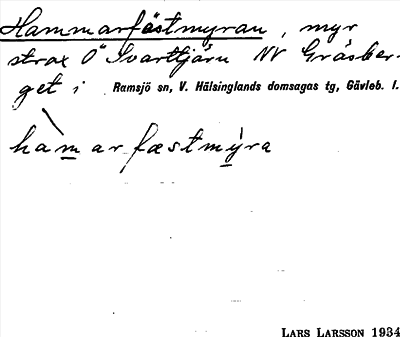 Hammarfästmyran, myr
strax O Svarttjärn NV Gråsber-
get i Ramsjö sn, V. Hälsinglands domsagas tg, Gävleb. l.
hàmarfæstmýra
LARS LARSSON 1934